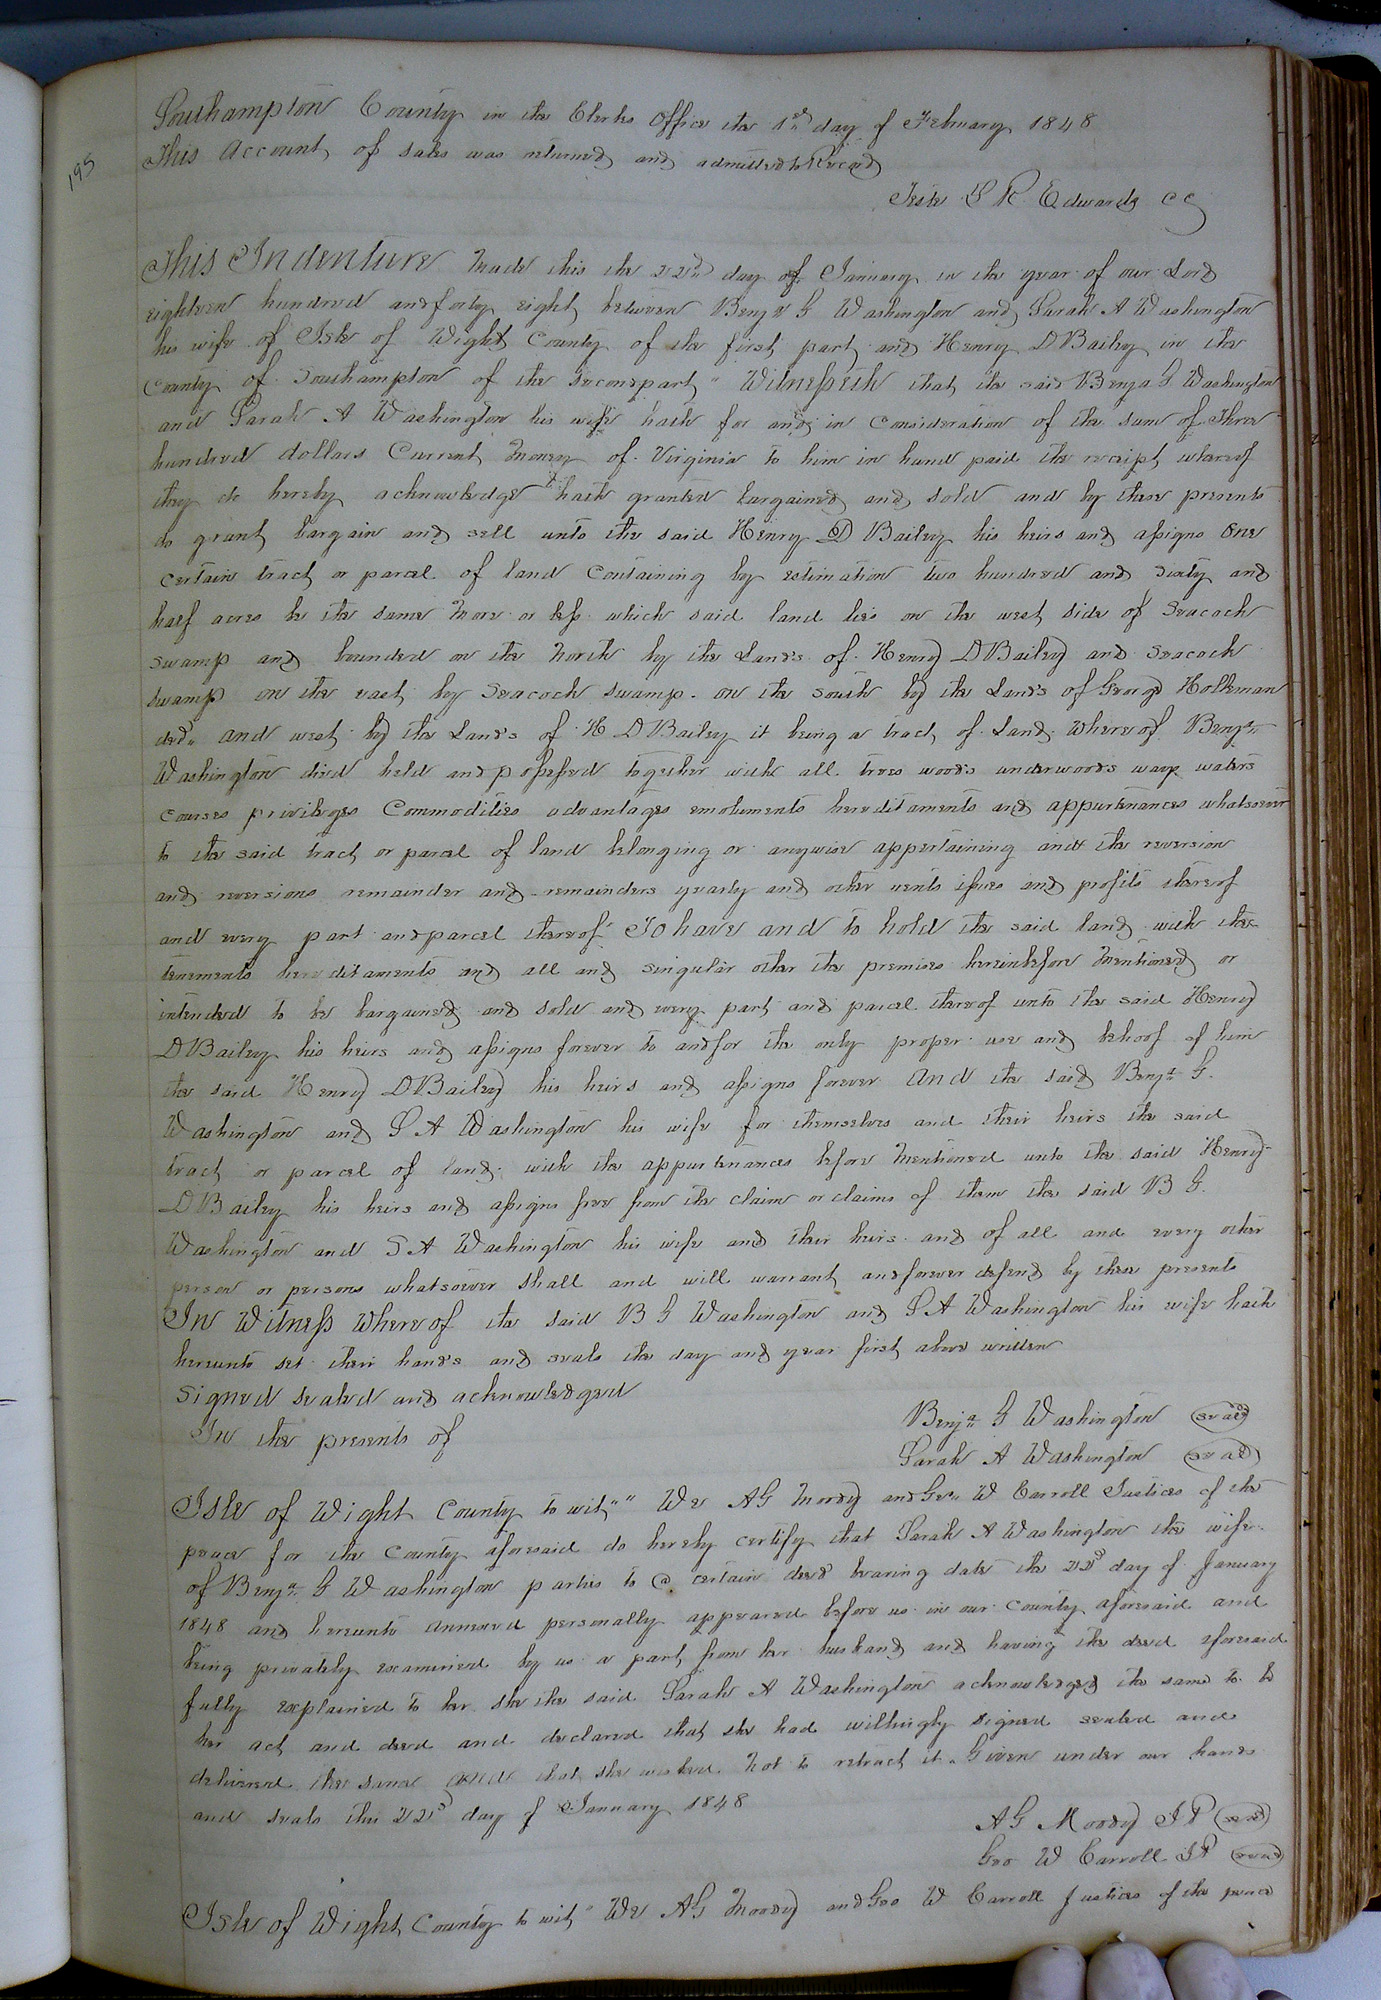 195
Southampton County in the Clerks Office the 1st day of February 1848
This Account of sales was returned and admitted to Record
Teste L R Edwards CC
This Indenture Made this the 22nd day of January in the year of our Lord
eighteen hundred and forty eight between Benja G Washington and Sarah A Washington
his wife of Isle of Wight County of the first part and Henry D Bailey in the
County of Southampton of the Second part " Witnesseth that the said Benja G Washington
and Sarah A Washington his wife hath for and in Consideration of the sum of Three
hundred dollars Current Money of Virginia to him in hand paid the receipt whereof
they do hereby acknowledge hath granted bargained and sold and by these presents
do grant bargain and sell unto the said Henry D Bailey his heirs and assigns One
certain tract or parcel of land Containing by estimation two hundred and Sixty and
half acres be the same More or less which said land lies on the west side of Seacock
swamp and bounded on the North by the Lands of Henry D Bailey and Seacock
swamp on the east by Seacock swamp. on the south by the Lands of George Holleman
decd. and west by the Lands of H D Bailey it being a tract of Land Whereof Benja
Washington died held and possessed together with all trees woods underwoods ways waters
courses privileges Commodities advantages emoluments hereditaments and appurtenances whatsoever
to the said tract or parcel of land belonging or anywise appertaining and the reversion
and reversions remainder and remainders yearly and other rents issues and profits thereof
and every part and parcel thereof To have and to hold the said land with the
tenements hereditaments and all and singular other the premises hereinbefore Mentioned or
intended to be bargained and sold and every part and parcel thereof unto the said Henry
D Bailey his heirs and assigns forever to and for the only proper use and behoof of him
the said Henry D Bailey his heirs and assigns forever And the said Benja G.
Washington and S A Washington his wife for themselves and their heirs the said
tract or parcel of land with the appurtenances before Mentioned unto the said Henry
D Bailey his heirs and assigns free from the claim or claims of them the said B G.
Washington and S A Washington his wife and their heirs and of all and every other
person or persons whatsoever Shall and will warrant and forever defend by these presents
In Witness Whereof the said B G Washington and S A Washington his wife hath
hereunto set their hands and seals the day and year first above written
Signed sealed and acknowledged
In the presents of
Benja G Washington (seal)
Sarah A Washington (seal)
Isle of Wight County to wit "" We AG Moody and Geo W Carroll Justices of the
peace for the County aforesaid do hereby certify that Sarah A Washington the wife
of Benja G Washington parties to a certain deed bearing date the 22d day of January
1848 and hereunto annexed personally appeared before us in our County aforesaid and
being privately examined by us a part from her husband and having the deed aforesaid
fully explained to her she the said Sarah A Washington acknowledged the same to be
her act and deed and declared that she had willingly signed sealed and
delivered the same And that she wished Not to retract it. Given under our hands
and seals this 22d day of January 1848
AG Moody JP (seal)
Geo W Carroll JP (seal)
Isle of Wight County to wit " We AG Moody and Geo W Carroll Justices of the peace